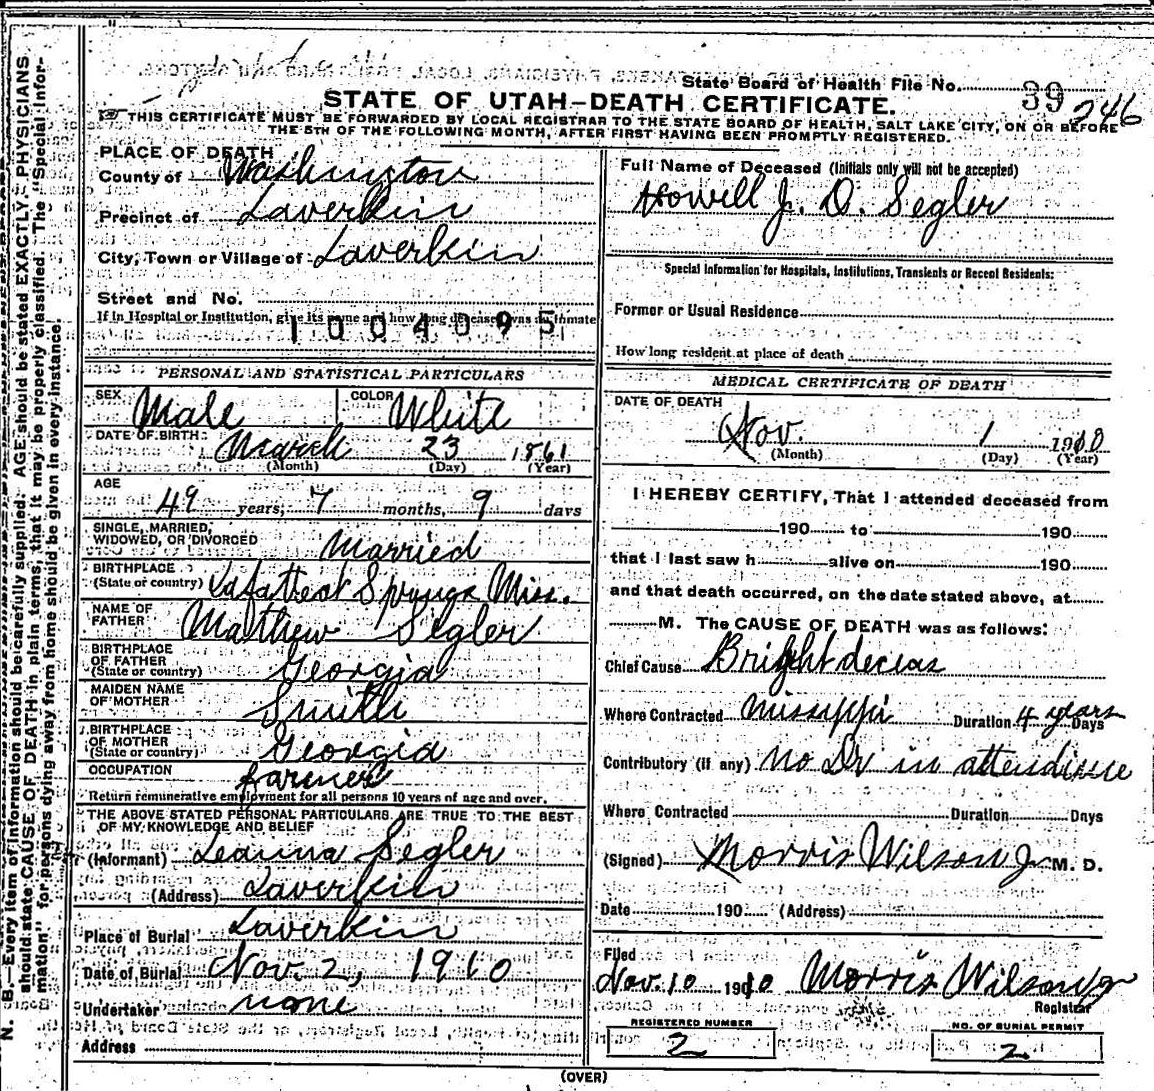 State Board of Health File No. 39 246
STATE OF UTAH—DEATH CERTIFICATE.
THIS CERTIFICATE MUST BE FORWARDED BY LOCAL REGISTRAR TO THE STATE BOARD OF HEALTH, SALT LAKE CITY, ON OR BEFORE
THE 5TH OF THE FOLLOWING MONTH, AFTER FIRST HAVING BEEN PROMPTLY REGISTERED.
PLACE OF DEATH
County of Washington
Precinct of Laverkin
City, Town or Village of Laverkin
Street and No.
If in Hospital or Institution, give its name and how long deceased was an inmate
1004095
PERSONAL AND STATISTICAL PARTICULARS
SEX Male COLOR White
DATE OF BIRTH: March 23 1861
(Month) (Day) (Year)
AGE
49 years, 7 months, 9 days
SINGLE, MARRIED,
WIDOWED, OR DIVORCED Married
BIRTHPLACE
(State or country) Springs Miss.
NAME OF
FATHER Mathew Segler
BIRTHPLACE
OF FATHER
(State or country) Georgia
MAIDEN NAME
OF MOTHER Smith
BIRTHPLACE
OF MOTHER
(State or country) Georgia
OCCUPATION farmer
Return remunerative employment for all persons 10 years of age and over.
THE ABOVE STATED PERSONAL PARTICULARS ARE TRUE TO THE BEST
OF MY KNOWLEDGE AND BELIEF
(Informant) Leanna Segler
(Address) Laverkin
Place of Burial Laverkin
Date of Burial Nov. 2, 1910
Undertaker none
Address
Full Name of Deceased (Initials only will not be accepted)
Howell J. D. Segler
Special Information for Hospitals, Institutions, Transients or Recent Residents:
Former or Usual Residence
How long resident at place of death
MEDICAL CERTIFICATE OF DEATH
DATE OF DEATH
Nov. 1 1910
(Month) (Day) (Year)
I HEREBY CERTIFY, That I attended deceased from
190 to 190
that I last saw h alive on 190
and that death occurred, on the date stated above, at
M. The CAUSE OF DEATH was as follows:
Chief Cause Bright deceas
Where Contracted Missippi Duration 4 years Days
Contributory (if any) No Dr in attendince
Where Contracted Duration Days
(Signed) Morris Wilson Jr M. D.
Date 190 (Address)
Filed
Nov. 10 1910 Morris Wilson Jr
Registrar
REGISTERED NUMBER
2
NO. OF BURIAL PERMIT
2
(OVER)
N. B.—Every item of information should be carefully supplied. AGE should be stated EXACTLY. PHYSICIANS
should state CAUSE OF DEATH in plain terms, that it may be properly classified. The "Special Infor-
mation" for persons dying away from home should be given in every instance.